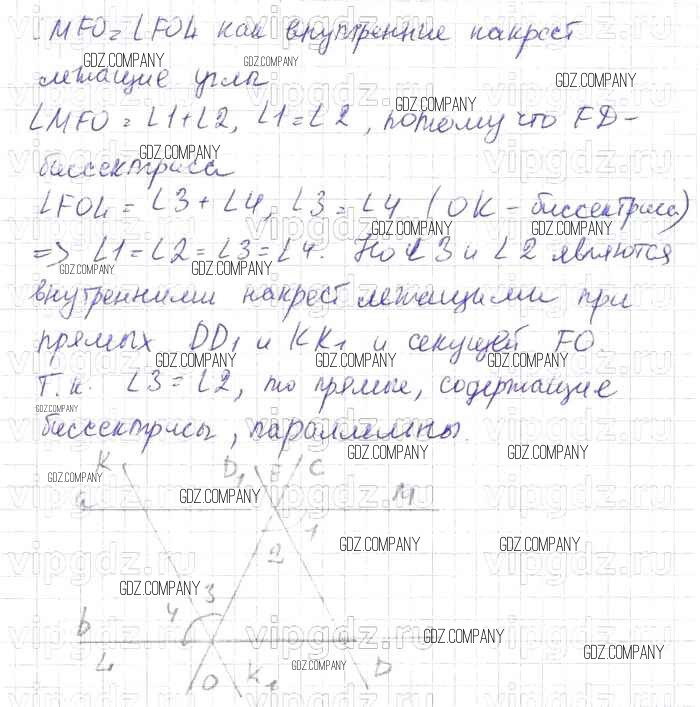 ∠MFO = ∠FO4 как внутренние накрест
лежащие углы
∠MFO = ∠1+∠2, ∠1=∠2, потому что FD-
биссектриса
∠FO4 = ∠3+∠4, ∠3=∠4 (OK-биссектриса)
=> ∠1=∠2=∠3=∠4. Но ∠3 и ∠2 являются
внутренними накрест лежащими при
прямых DD1 и KK1 и секущей FO.
Т.к. ∠3=∠2, то прямые, содержащие
биссектрисы, параллельны.
K D1 F C
a M
1
2
3
4
b
L
O K1 D
GDZ.COMPANY
vipgdz.ru